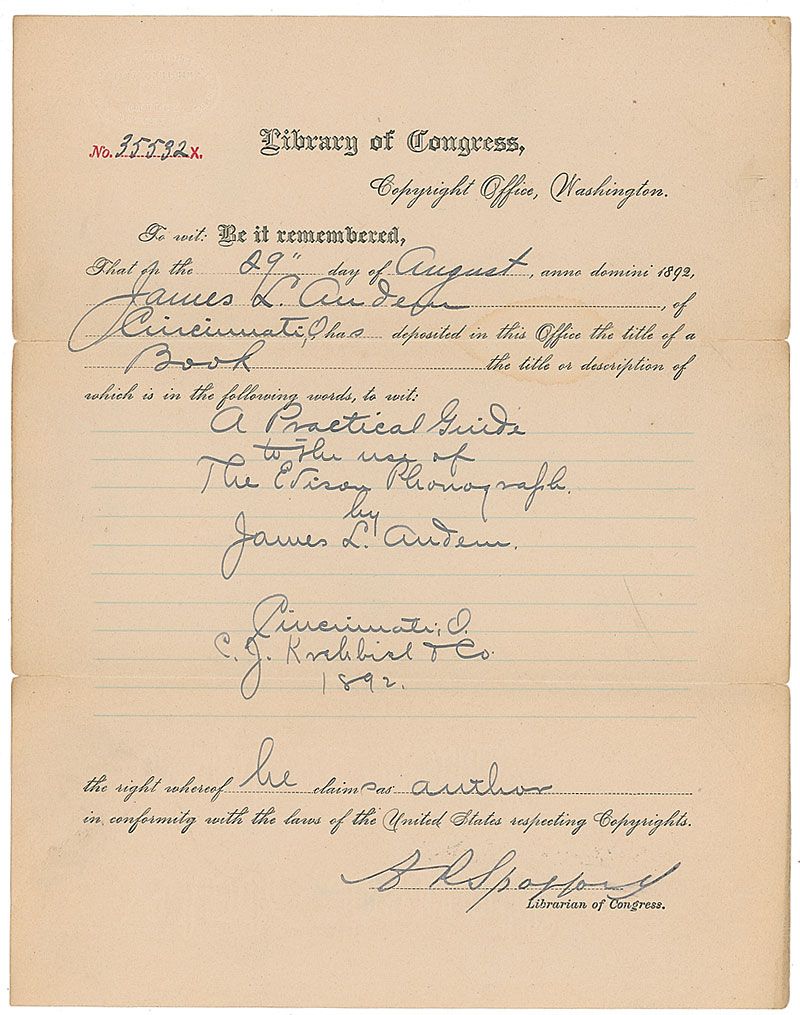 No. 35532 X.
Library of Congress,
Copyright Office, Washington.
To wit: Be it remembered,
That on the 29" day of August, anno domini 1892,
James L. Andem, of
Cincinnati, O, has deposited in this Office the title of a
Book the title or description of
which is in the following words, to wit:
A Practical Guide
to the use of
The Edison Phonograph.
by
James L. Andem.
Cincinnati, O.
C. J. Krehbiel & Co.
1892.
the right whereof he claims as author
in conformity with the laws of the United States respecting Copyrights.
A R Spofford
Librarian of Congress.